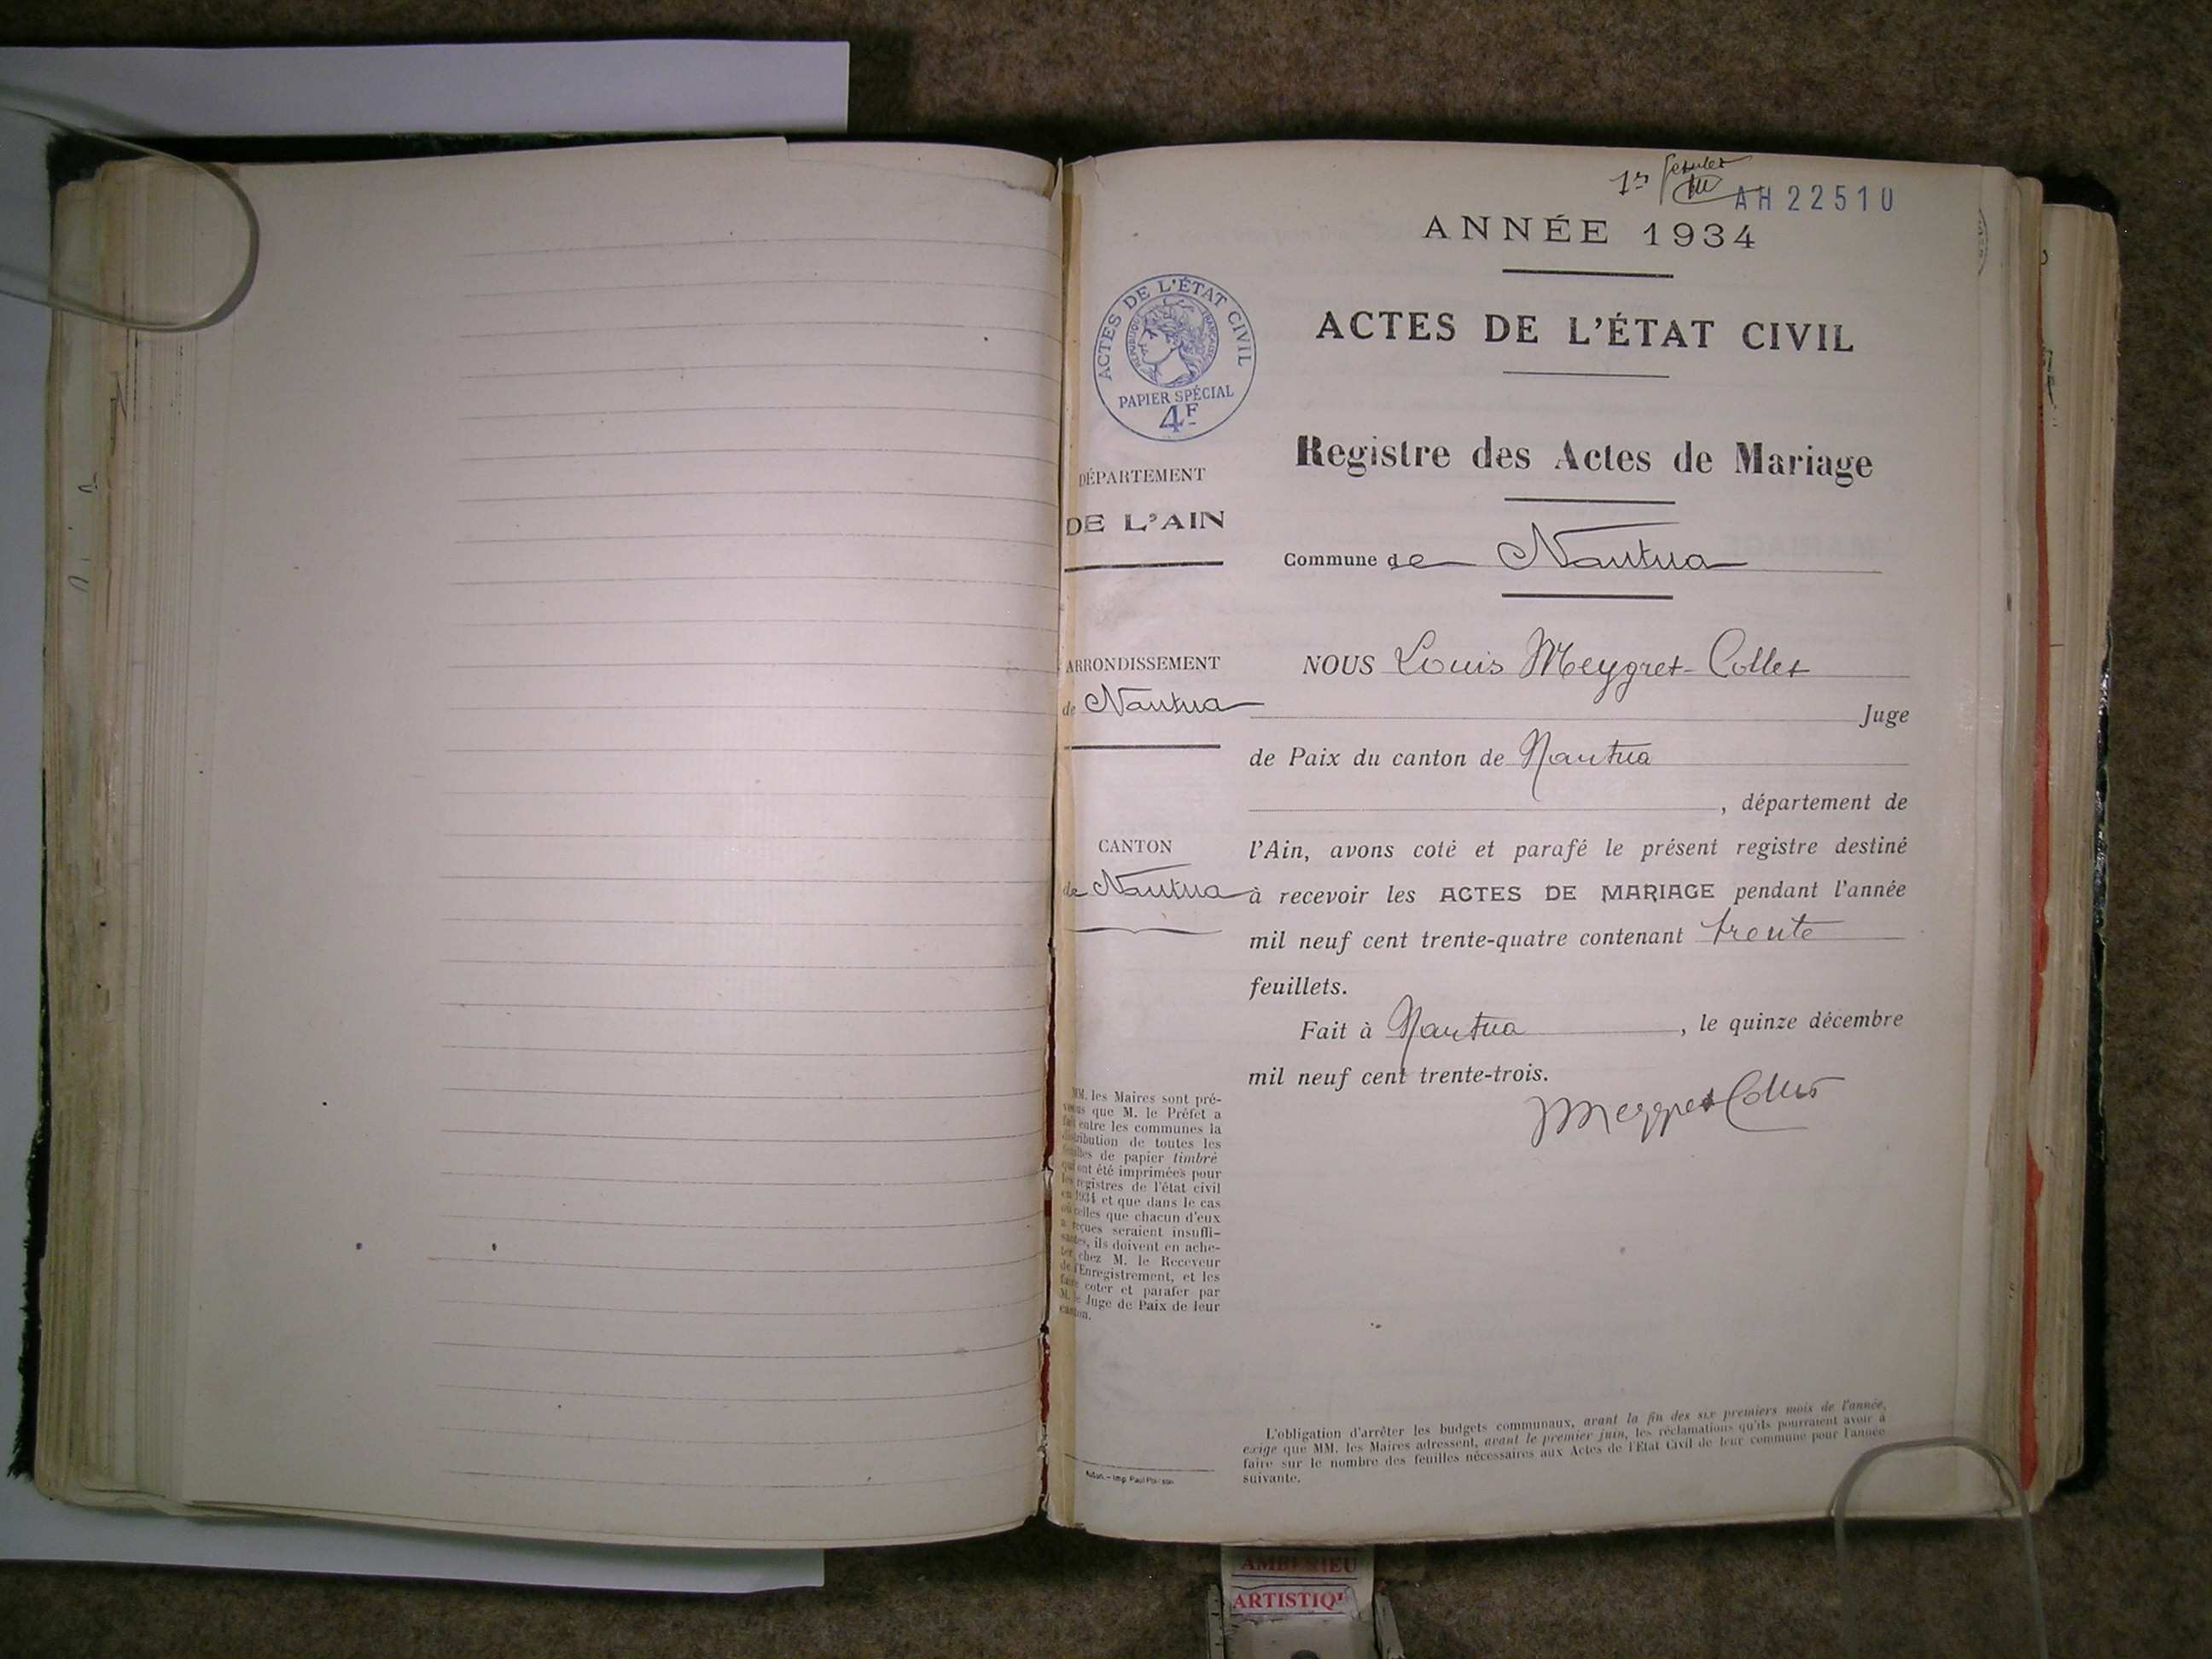 1er feuillet
AH 22510
ANNÉE 1934
ACTES DE L'ÉTAT CIVIL
RÉPUBLIQUE FRANÇAISE
PAPIER SPÉCIAL
4F
ACTES DE L'ÉTAT CIVIL
Registre des Actes de Mariage
Commune de Nantua
DÉPARTEMENT
DE L'AIN
ARRONDISSEMENT
de Nantua
CANTON
de Nantua
NOUS Louis Meygret-Collet
Juge
de Paix du canton de Nantua
, département de
l'Ain, avons coté et parafé le présent registre destiné
à recevoir les ACTES DE MARIAGE pendant l'année
mil neuf cent trente-quatre contenant trente
feuillets.
Fait à Nantua, le quinze décembre
mil neuf cent trente-trois.
Meygret Collet
MM. les Maires sont pré-
venus que M. le Préfet a
fait entre les communes la
distribution de toutes les
feuilles de papier timbré
qui ont été imprimées pour
les registres de l'état civil
en 1934 et que dans le cas
où celles que chacun d'eux
a reçues seraient insuffi-
santes, ils doivent en ache-
ter chez M. le Receveur
de l'Enregistrement, et les
faire coter et parafer par
M. le Juge de Paix de leur
canton.
Imp. Paul
L'obligation d'arrêter les budgets communaux, avant la fin des six premiers mois de l'année,
exige que MM. les Maires adressent, avant le premier juin, les réclamations qu'ils pourraient avoir à
faire sur le nombre des feuilles nécessaires aux Actes de l'Etat Civil de leur commune pour l'année
suivante.
AMBERIEU
ARTISTIQU